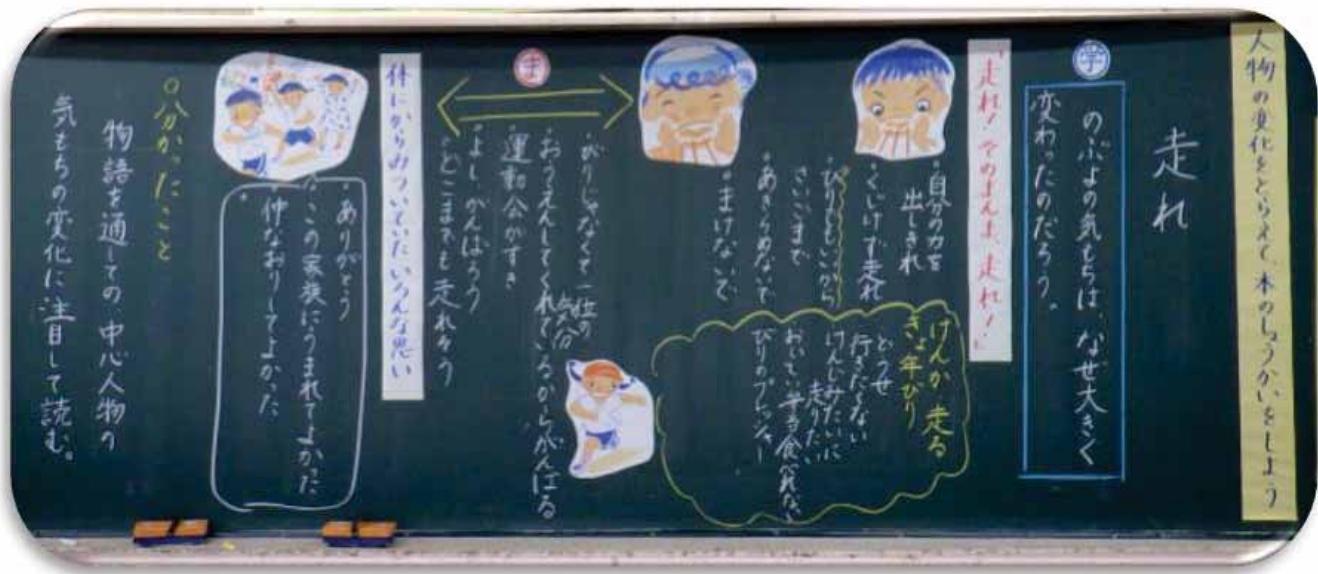 人物の変化をとらえて、本のしょうかいをしよう
走れ
学
のぶよの気もちは、なぜ大きく
変わったのだろう。
「走れ!そのまんま、走れ!」
・自分の力を
出しきれ
・くじけず走れ
・びりでもいいから
さいごまで
・あきらめないで
・まけないで
けんか 走る
きょ年びり
どうせ
行きたくない
けんじみたいに
走りたい
おいしい弁当食べれない
びりのプレッシャー
ま
・びりじゃなくて一位の
気分
・おうえんしてくれているからがんばる
・運動会がすき
・よし、がんばろう
・どこまでも走れそう
体にからみついていたいろんな思い
・ありがとう
・この家族にうまれてよかった
・仲なおりしてよかった
○分かったこと
物語を通しての、中心人物の
気もちの変化に注目して読む。